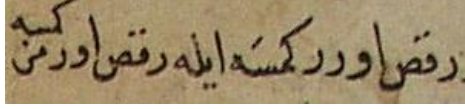 رقص اورر كمسه ايله رقص اورمن كمسه